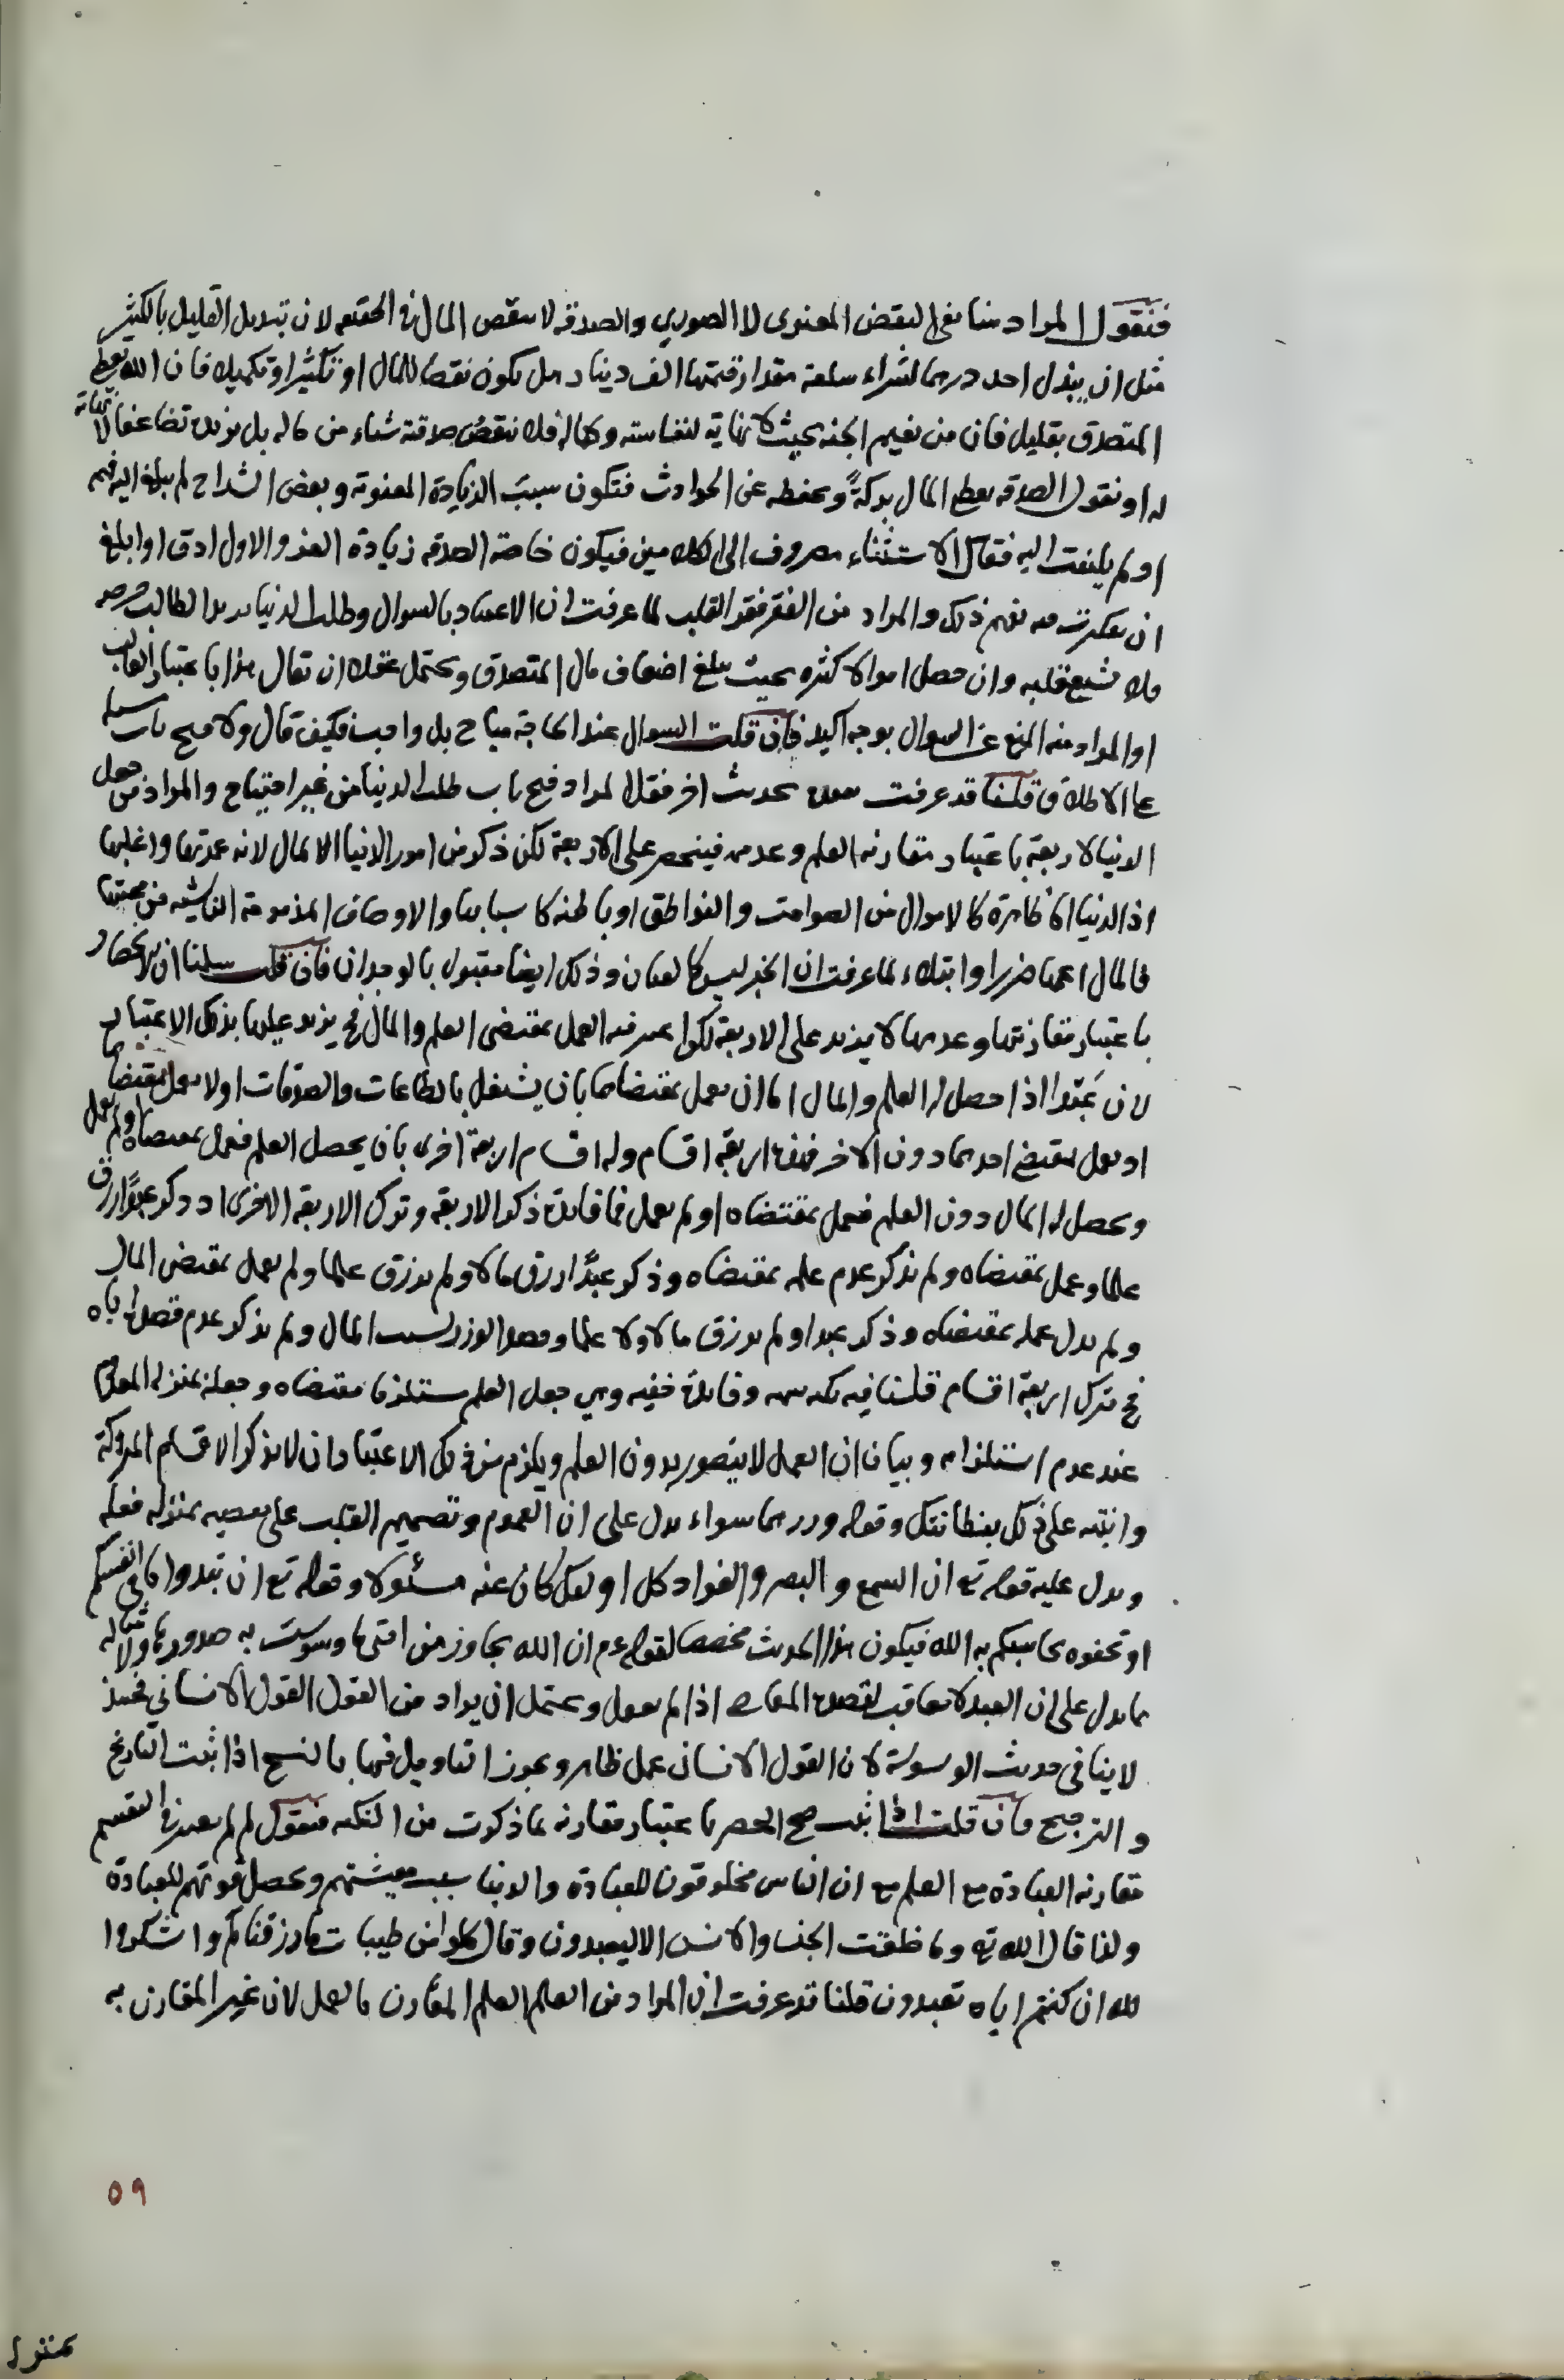 فنقول المراد هنا نفى النقض المعنوى لا الصوري والصدقه لا ينقص المال فى الحقيقه لان تبديل القليل بالكثير
مثل ان يبذل احد درهما لشراء سلعة مقدار قيمتها الف دينار هل يكون نقصا للمال او تكثيرا وتكميلا فان الله يعطى
المتصدق بقليل فان من نعيم الجنه بحيث لا نهاية لنفاسته وكماله فلا ينقص صدقته شىء من ماله بل يزيده تضاعفا لا نهاية
له او نقول الصدقه يعطى المال بركةً ويحفظه عن الحوادث فتكون سببَ الزيادة المعنوية وبعض الشراح لم يبلغ اليه فهمه
او لم يلتفت اليه فقال الاستثناء مصروف الى الكلامين فيكون خاصة الصدقه زيادة العز والاول ادق او ابلغ
ان تفكرت فيه تفهم ذلك والمراد من الفقر فقر القلب لما عرفت ان الاعتياد بالسوال وطلب الدنيا يزيد الطالب حرصه
فلا يشبع قلبه وان حصل اموالا كثيره بحيث يبلغ اضعاف مال المتصدق ويحتمل عقلا ان يقال هذا باعتبار الغالب
او المراد منه المنع عن السوال بوجه اكيد فان قلت السوال عند الحاجة مباح بل واجب فكيف قال ولا فتح باب مسئلة
على الاطلاق قلنا قد عرفت معناه بحديث اخر فقل المراد فتح باب طلب الدنيا من غير احتياج والمراد من جعل
الدنيا لاربعة باعتبار مقارنه العلم وعدمه فينحصر على الاربعة لكن ذكر من امور الدنيا المال لانه عمدتها واغلبها
اذ الدنيا اما ظاهرة كالاموال من الصوامت والنواطق او باطنه كاسبابها والاوصاف المذمومة الناشيه من محبتها
فالمال اعمها ضررا وابتلاء لما عرفت ان الخبر ليس كالعيان وذلك ايضا مقبول بالوجدان فان قلت سلمنا ان الانحصار
باعتبار مقارنتها وعدمها لا يزيد على الاربعة لكن اعتبر فيه العمل بمقتضى العلم والمال فح يزيد عليها بذلك الاعتبار
لان عبدا اذا حصل له العلم والمال اما ان يعمل بمقتضاهما بان يشتغل بالطاعات والصدقات او لا يعمل بمقتضاهما
او يعمل بمقتضى احدهما دون الاخر فهذه اربعة اقسام وله اقسام اربعة اخرى بان يحصل العلم فعمل بمقتضاه او لم يعمل
ويحصل له المال دون العلم فعمل بمقتضاه او لم يعمل فما فايدة ذكر الاربعة وترك الاربعة الاخرى اذ ذكر عبدًا رزق
علما وعمل بمقتضاه ولم يذكر عدم عمله بمقتضاه وذكر عبدًا رزق مالا ولم يرزق علما ولم يعمل بمقتضى المال
ولم يدل عمله بمقتضاه وذكر عبدا ولم يرزق مالا ولا علما وقصد الوزر بسبب المال ولم يذكر عدم قصده اياه
فح يترك اربعة اقسام قلنا فيه نكته وفايدة خفيه وهي جعل العلم مستلزما مقتضاه وجعله بمنزله المعدوم
عند عدم استلزامه وبيان ان العمل لا يتصور بدون العلم ويلزم من ذلك الاعتبار ان لا يذكر الاقسام المتروكة
وانتبه على ذلك بفطانتك وقوله ووزرهما سواء يدل على ان العموم وتصميم القلب على معصيه بمنزله فعله
ويدل عليه قوله تع ان السمع والبصر والفواد كل اولئك كان عنه مسئولا وقوله تع ان تبدوا ما فى انفسكم
او تخفوه يحاسبكم به الله فيكون هذا الحديث مخصصا لقوله عم ان الله يجاوز من امتى ما وسوست به صدورها وامثاله
مما يدل على ان العبد لا يعاقب لقصده المعاصى اذا لم يعمل ويحتمل ان يراد من القول القول الانسانى فحينئذ
لاينافى حديث الوسوسة لان القول الانسانى عمل ظاهر ويجوز التاويل فيها بالنسخ اذا ثبت التاريخ
والترجيح فان قلت اذا ثبت صح الحصر باعتبار مقارنه بما ذكرت من النكته فنقول لم لم يعتبر فى التقسيم
مقارنه العبادة مع العلم مع ان الناس مخلوقون للعبادة والدنيا سبب معيشتهم ويحصل قوتهم للعبادة
ولذا قال الله تع وما خلقت الجن والانس الا ليعبدون وقال كلوا من طيبات ما رزقناكم واشكروا
لله ان كنتم اياه تعبدون قلنا قد عرفت ان المراد من العلم العلم المقارن بالعمل لان غير المقارن به
٥٩
بمنزله